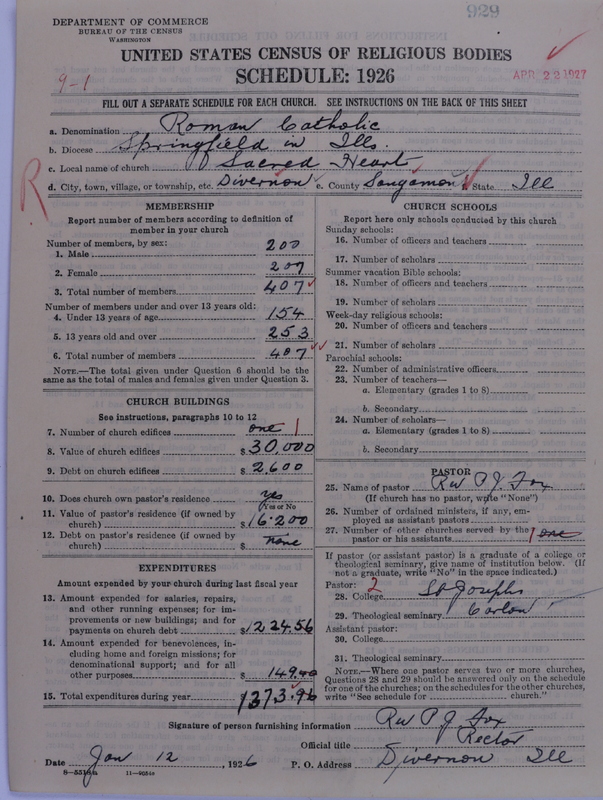 929
DEPARTMENT OF COMMERCE
BUREAU OF THE CENSUS
WASHINGTON
UNITED STATES CENSUS OF RELIGIOUS BODIES
SCHEDULE: 1926
9-1
APR 22 1927
FILL OUT A SEPARATE SCHEDULE FOR EACH CHURCH. SEE INSTRUCTIONS ON THE BACK OF THIS SHEET
a. Denomination Roman Catholic
b. Diocese Springfield in Ills.
c. Local name of church Sacred Heart
d. City, town, village, or township, etc. Divernon e. County Sangamon State Ill
R
MEMBERSHIP
Report number of members according to definition of
member in your church
Number of members, by sex:
1. Male 200
2. Female 207
3. Total number of members 407
Number of members under and over 13 years old:
4. Under 13 years of age 154
5. 13 years old and over 253
6. Total number of members 407
NOTE.—The total given under Question 6 should be the
same as the total of males and females given under Question 3.
CHURCH BUILDINGS
See instructions, paragraphs 10 to 12
7. Number of church edifices one 1
8. Value of church edifices $30,000
9. Debt on church edifices $2,600
10. Does church own pastor's residence yes
(Yes or No)
11. Value of pastor's residence (if owned by
church) $16.200
12. Debt on pastor's residence (if owned by
church) none
EXPENDITURES
Amount expended by your church during last fiscal year
13. Amount expended for salaries, repairs,
and other running expenses; for im-
provements or new buildings; and for
payments on church debt $1224.56
14. Amount expended for benevolences, in-
cluding home and foreign missions; for
denominational support; and for all
other purposes $149.40
15. Total expenditures during year 1373.96
CHURCH SCHOOLS
Report here only schools conducted by this church
Sunday schools:
16. Number of officers and teachers
17. Number of scholars
Summer vacation Bible schools:
18. Number of officers and teachers
19. Number of scholars
Week-day religious schools:
20. Number of officers and teachers
21. Number of scholars
Parochial schools:
22. Number of administrative officers
23. Number of teachers—
a. Elementary (grades 1 to 8)
b. Secondary
24. Number of scholars—
a. Elementary (grades 1 to 8)
b. Secondary
PASTOR
25. Name of pastor Rev P J Fox
(If church has no pastor, write "None")
26. Number of ordained ministers, if any, em-
ployed as assistant pastors
27. Number of other churches served by the
pastor or his assistants 1 one
If pastor (or assistant pastor) is a graduate of a college or
theological seminary, give name of institution below. (If
not a graduate, write "No" in the space indicated.)
Pastor: 2
28. College St Josephs
29. Theological seminary Carlow
Assistant pastor:
30. College
31. Theological seminary
NOTE.—Where one pastor serves two or more churches,
Questions 28 and 29 should be answered only on the schedule
for one of the churches; on the schedules for the other churches,
write "See schedule for church."
Signature of person furnishing information Rev P J Fox
Official title Rector
Date Jan 12, 1926 P. O. Address Divernon Ill